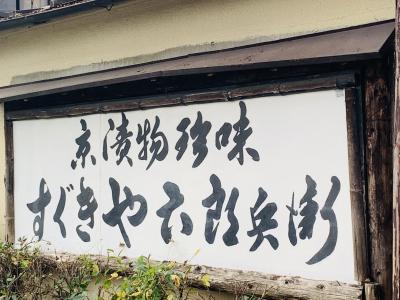 京漬物珍味
すぐきや六郎兵衛